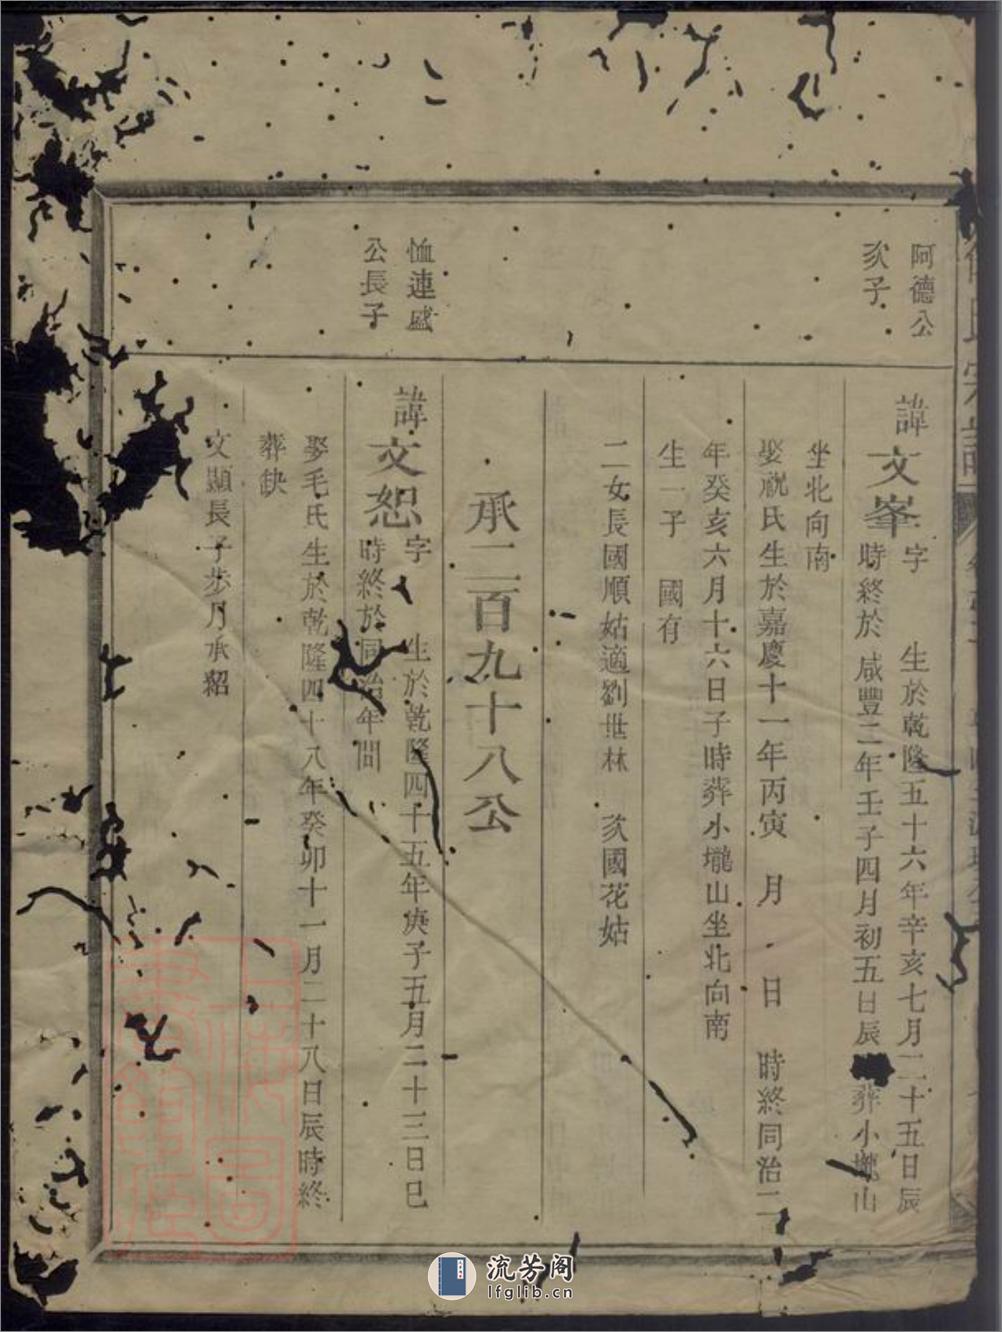 氏宗譜
阿德公
次子
諱文峯字 生於乾隆五十六年辛亥七月二十五日辰
時終於咸豐二年壬子四月初五日辰 葬小壠山
坐北向南
娶祝氏生於嘉慶十一年丙寅 月 日 時終同治二
年癸亥六月十六日子時葬小壠山坐北向南
生一子 國有
二女長國順姑適劉世林 次國花姑
承二百九十八公
恤連盛
公長子
諱文恕字 生於乾隆四十五年庚子五月二十三日巳
時終於同治年間
娶毛氏生於乾隆四十八年癸卯十一月二十八日辰時終
葬缺
文顯長子步月承紹
流芳阁
lfglib.cn